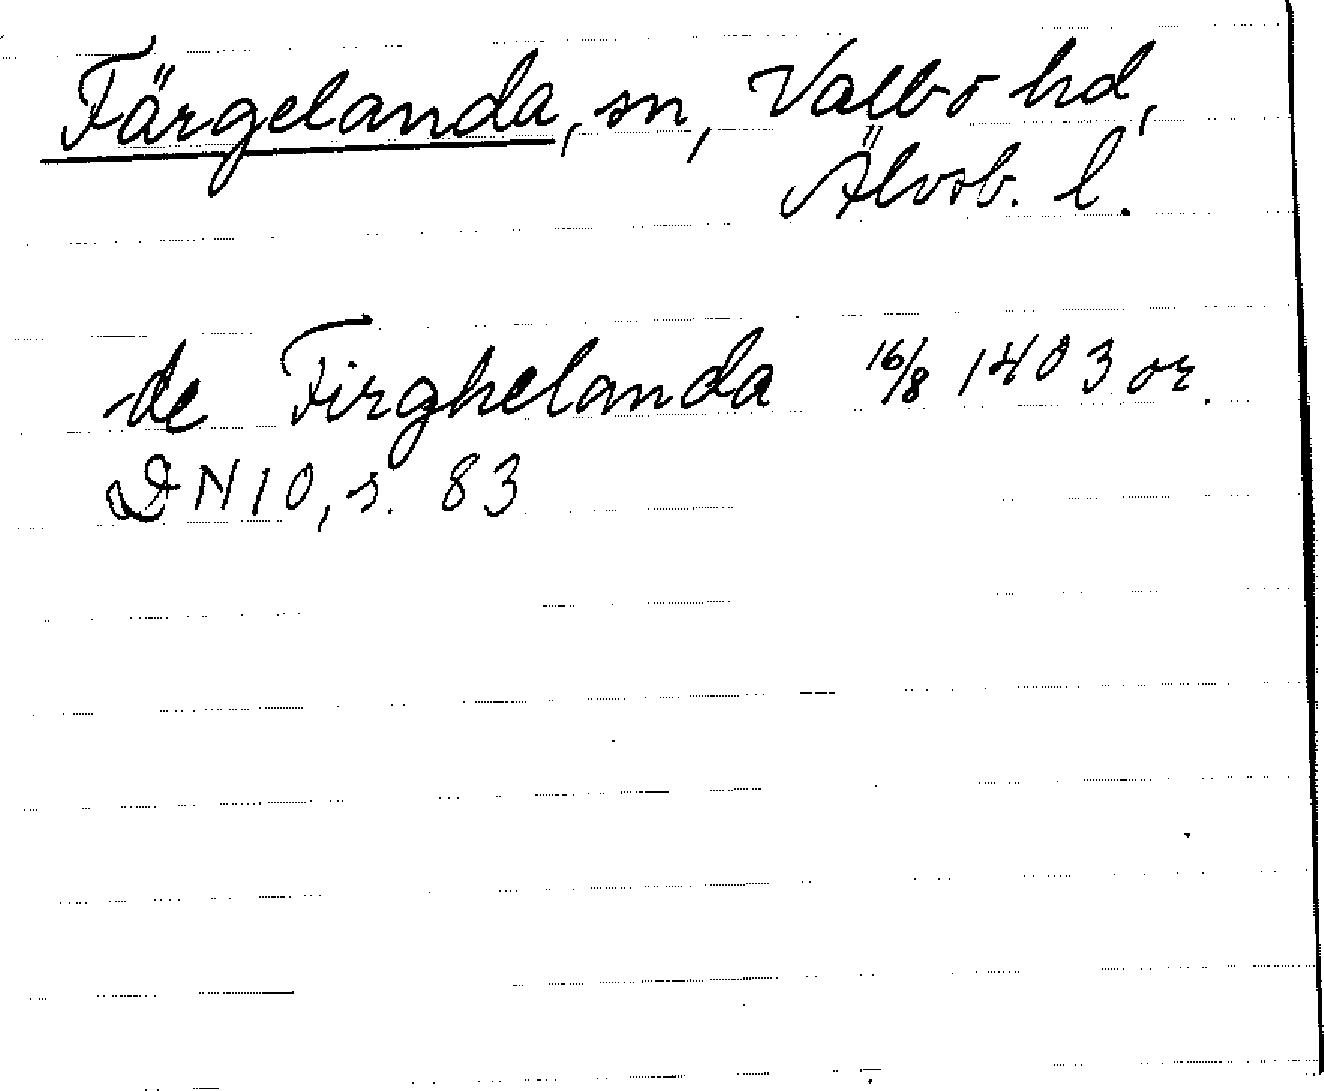 Färgelanda, sn, Valbo hd,
Älvsb. l.
de Firghelanda 16/8 1403 or.
DN 10, s. 83